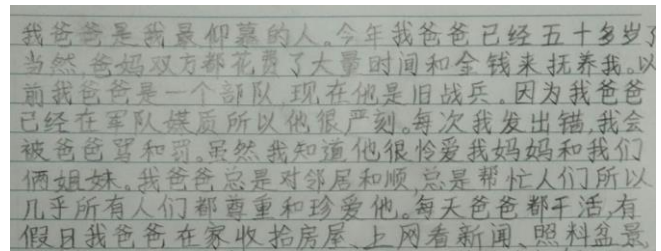 我爸爸是我最仰慕的人。今年我爸爸已经五十多岁了
当然,爸妈双方都花费了大量时间和金钱来抚养我。以
前我爸爸是一个部队,现在他是旧战兵。因为我爸爸
已经在军队媒质所以他很严刻。每次我发出错,我会
被爸爸骂和罚。虽然我知道他很怜爱我妈妈和我们
俩姐妹。我爸爸总是对邻居和顺,总是帮忙人们所以
几乎所有人们都尊重和珍爱他。每天爸爸都干活,有
假日我爸爸在家收拾房屋、上网看新闻、照料盆景